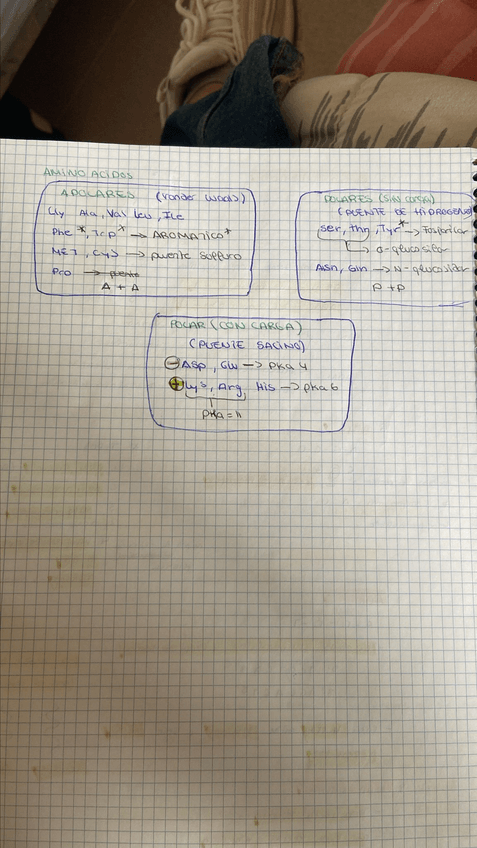 AMINO ACIDOS
APOLARES (Vander Waals)
Gly Ala, Val Leu, Ile
Phe*, Trp* → AROMATICO*
MET, Cys → puente sulfuro
Pro → puente
A + A
POLARES (SIN CARGA)
(PUENTE DE HIDROGENO)
Ser, Thr, Tyr* → Fosforilar
→ o-glucosilar
Asn, Gln → N-glucosilar
P + P
POLAR (CON CARGA)
(PUENTE SALINO)
⊖ Asp, Glu → pka 4
⊕ Lys, Arg, His → pka 6
pKa = 11